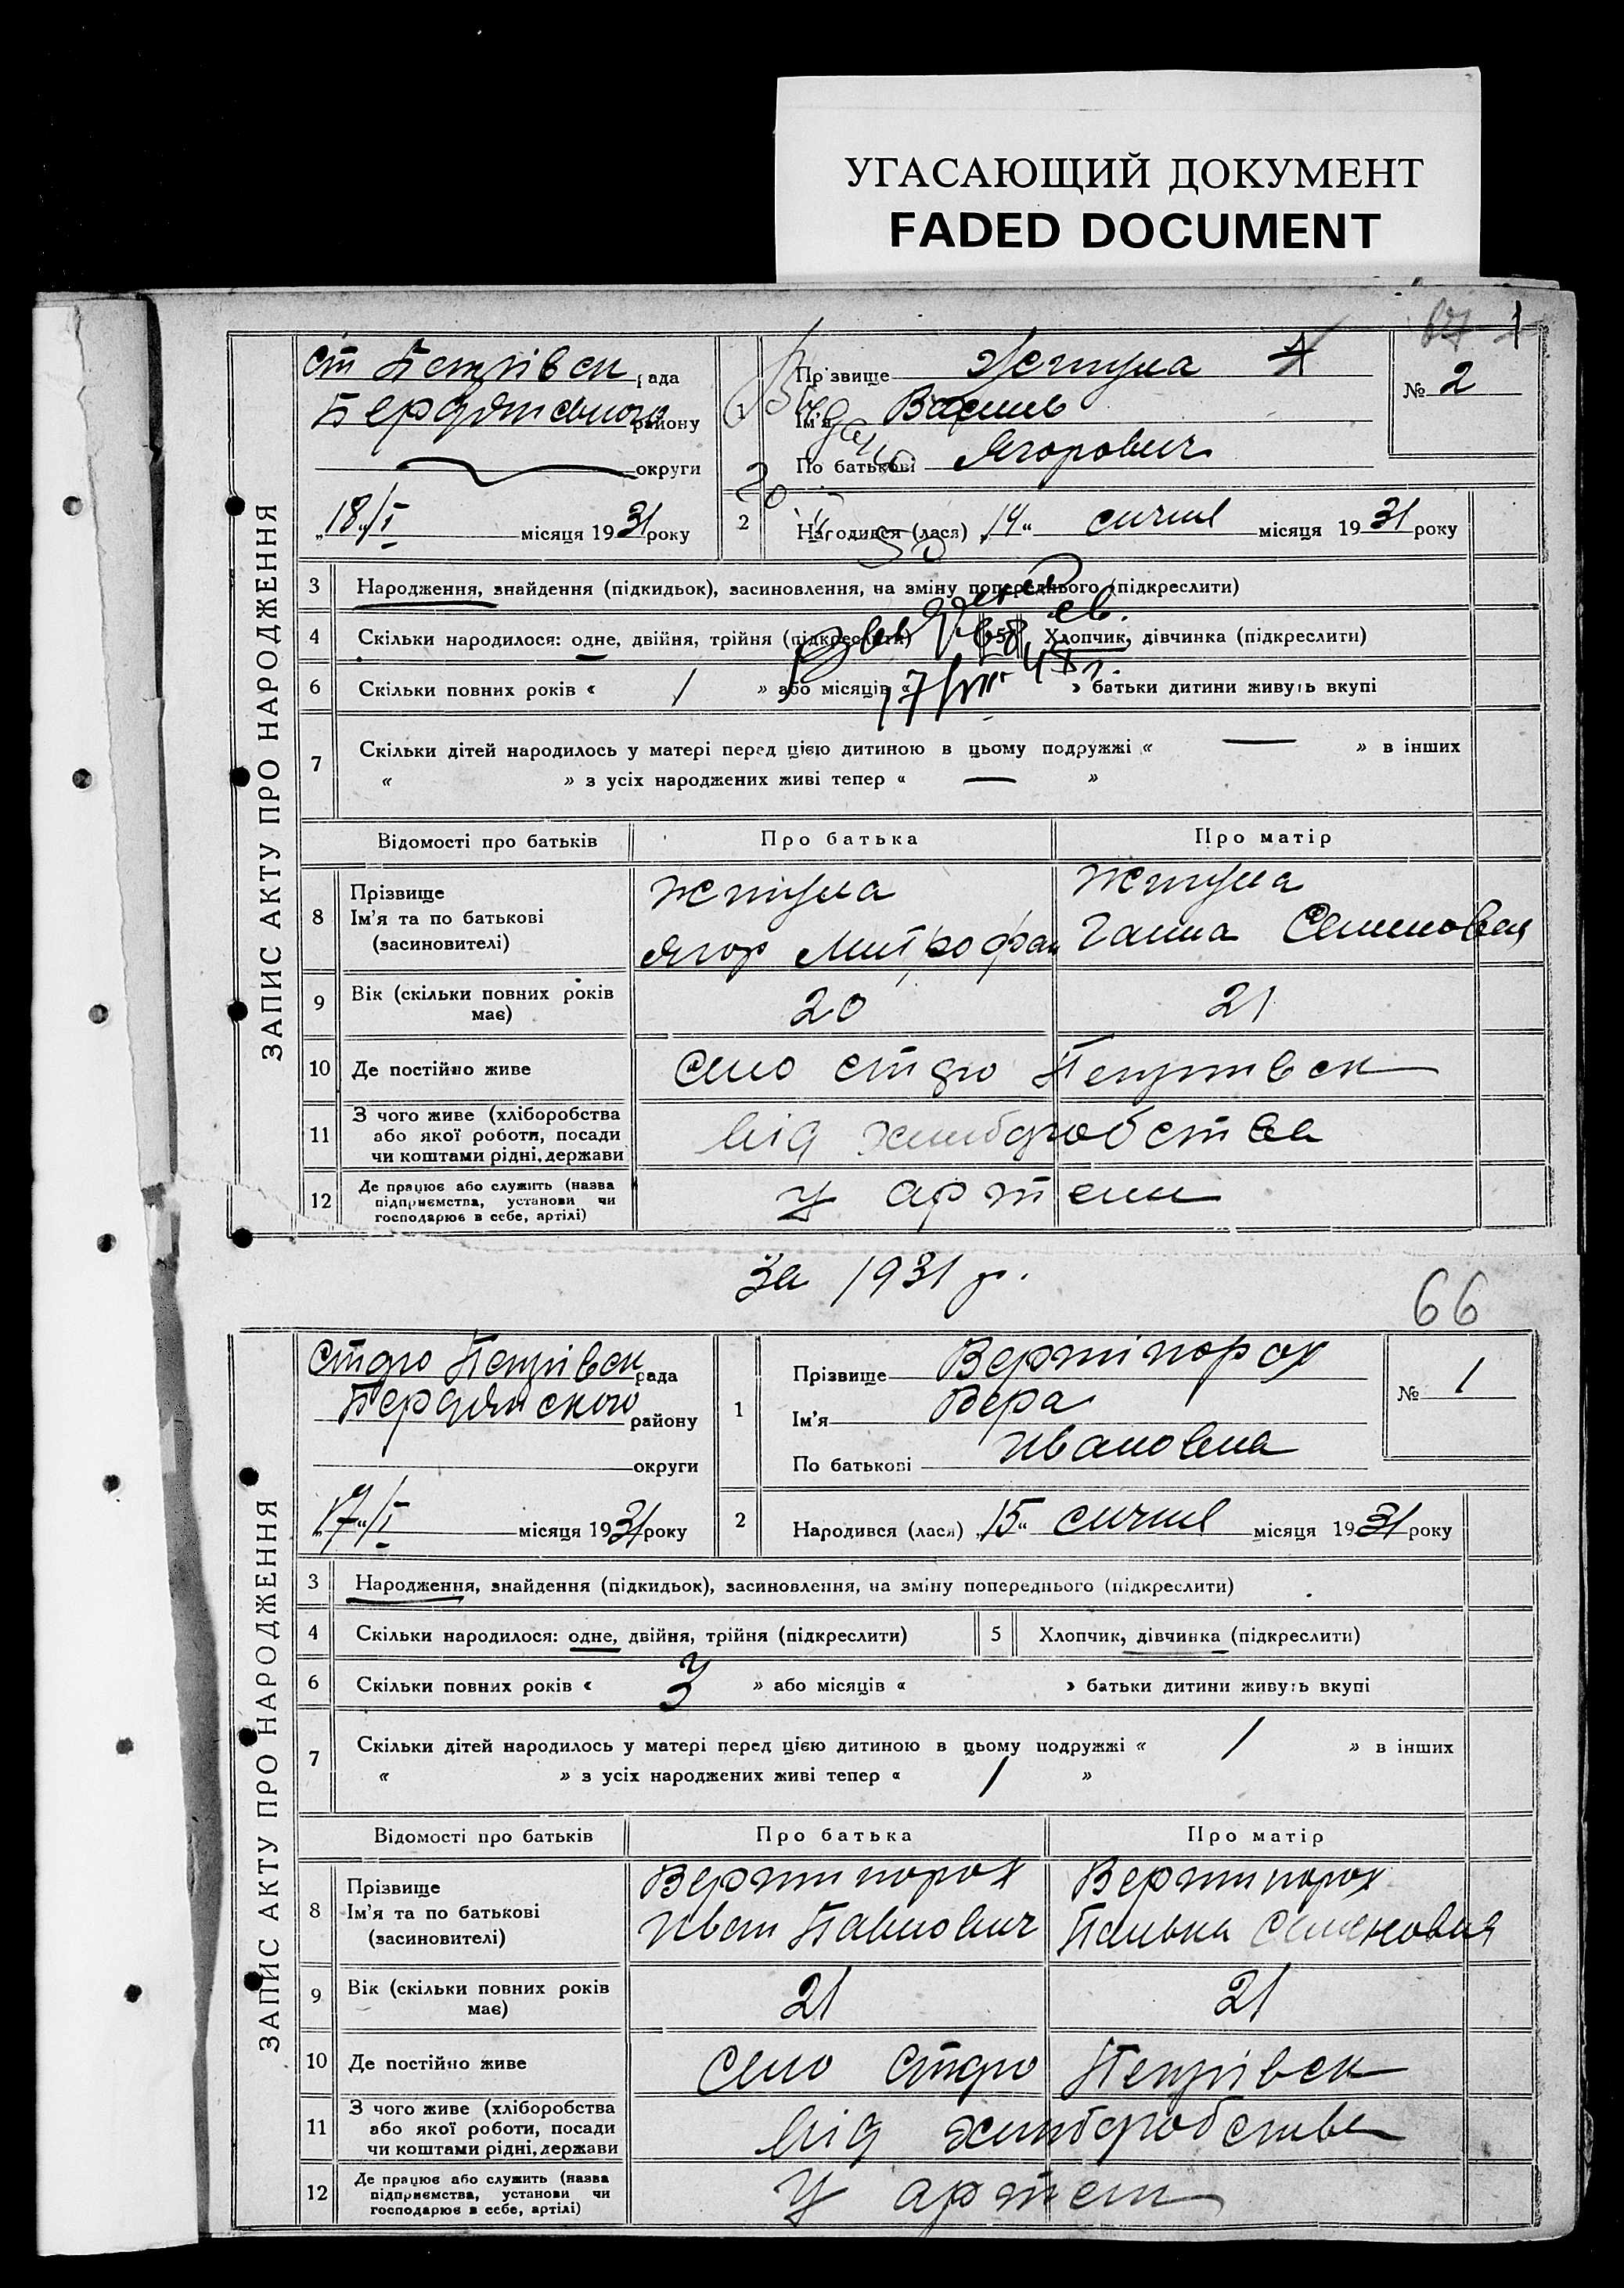 УГАСАЮЩИЙ ДОКУМЕНТ
FADED DOCUMENT
67 1
ЗАПИС АКТУ ПРО НАРОДЖЕННЯ
ст Петрівск рада
Бердянського району
округи
„18“/I місяця 1931 року
1 Прізвище Жтула
Ім'я Василь
По батькові Ягорович
№ 2
2 Народився (лася) „14“ січня місяця 1931 року
3 Народження, знайдення (підкидьок), засиновлення, на зміну попереднього (підкреслити)
4 Скільки народилося: одне, двійня, трійня (підкреслити) 5 Хлопчик, дівчинка (підкреслити)
6 Скільки повних років « 1 » або місяців « » батьки дитини живуть вкупі
7 Скільки дітей народилось у матері перед цією дитиною в цьому подружжі « — » в інших
« » з усіх народжених живі тепер « — »
Відомості про батьків Про батька Про матір
8 Прізвище
Ім'я та по батькові
(засиновителі)
Жтула
Ягор Митрофан
Жтула
Ганна Семеновня
9 Вік (скільки повних років
має) 20 21
10 Де постійно живе село стдро Петрівск
11 З чого живе (хліборобства
або якої роботи, посади
чи коштами рідні, держави
від хлиборобства
12 Де працює або служить (назва
підприємства, установи чи
господарює в себе, артілі)
у артели
За 1931 р.
66
ЗАПИС АКТУ ПРО НАРОДЖЕННЯ
Стдро Петрівск рада
Бердянского району
округи
„17“/I місяця 1931 року
1 Прізвище Вертіпорох
Ім'я Вера
По батькові Ивановна
№ 1
2 Народився (лася) „15“ січня місяця 1931 року
3 Народження, знайдення (підкидьок), засиновлення, на зміну попереднього (підкреслити)
4 Скільки народилося: одне, двійня, трійня (підкреслити) 5 Хлопчик, дівчинка (підкреслити)
6 Скільки повних років « 3 » або місяців « » батьки дитини живуть вкупі
7 Скільки дітей народилось у матері перед цією дитиною в цьому подружжі « 1 » в інших
« » з усіх народжених живі тепер « 1 »
Відомості про батьків Про батька Про матір
8 Прізвище
Ім'я та по батькові
(засиновителі)
Вертипорох
Иван Павлович
Вертипорох
Палька Семеновня
9 Вік (скільки повних років
має) 21 21
10 Де постійно живе село стдро Петрівск
11 З чого живе (хліборобства
або якої роботи, посади
чи коштами рідні, держави
від хлиборобства
12 Де працює або служить (назва
підприємства, установи чи
господарює в себе, артілі)
У артели